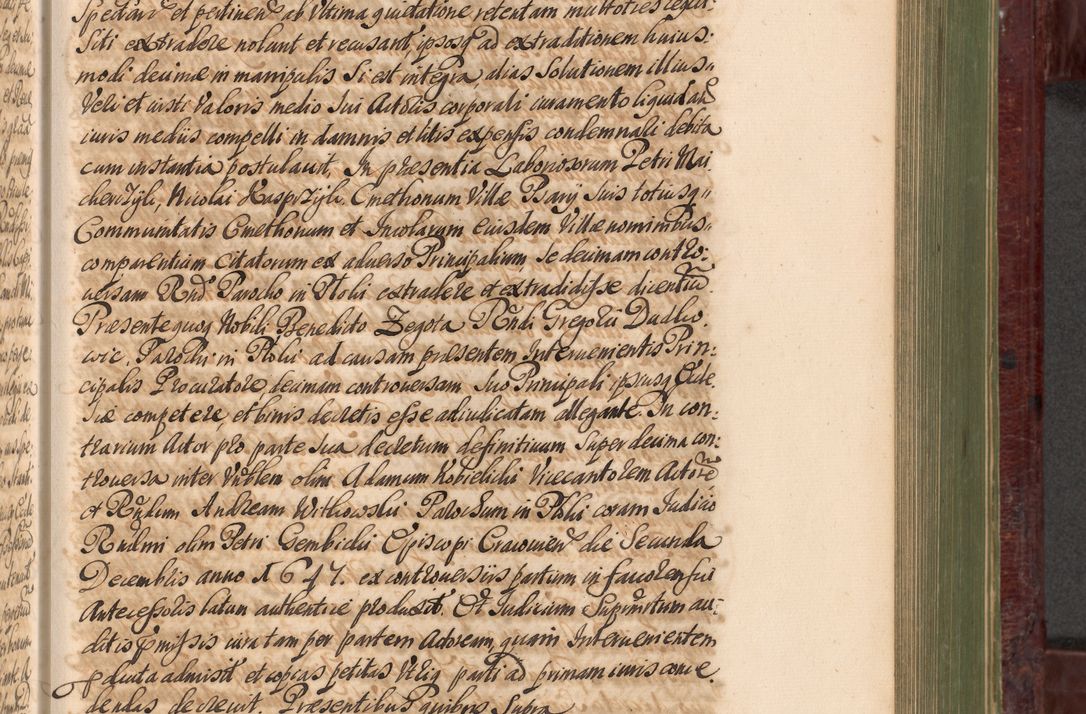 Spectan et pertinen ab Ultima quietatione retentam multoties requi:
siti extradere nolunt et recusant ipsosq ad extraditionem huius:
modi decimæ in manipulis si est integra, alias solutionem illius
Veri et iusti Valoris medio sui Actoris corporali iuramento liquidan
iuris mediis compelli in damnis et litis expensis condemnari debita
cum instantia postulavit, In præsentia Laboriosorum Petri Mai
cherczyk, Nicolai Kasprzyk Cmethonum Villæ Psary suis totiusq
Communitatis Cmethonum et Incolarum eiusdem Villæ nominibus
comparentium Citatorum ex adverso Principalium, se decimam contro:
versam Rndo Parocho in Płoki extradere et extradidisse dicentiu
Præsente quoq Nobili Benedicto Zegota Rndi Gregorii Dudko
wic. Parochi in Płoki ad causam præsentem Intervenientis Prin:
cipalis Procuratore decimam controversam suo Principali ipsiusq Eccle
siæ competere, et binis decretis esse adiudicatam allegante In con:
trarium Actor pro parte sua decretum definitivum super decima con:
troversa inter Vrblem olim Adamum Kobielicki Vicecantorem Actore
et Rndum Andream Witkowski Parochum in Płoki coram Iudicio
Rndmi olim Petri Gembicki Episcopi Cracovien die Secunda
Decembris anno 1647. ex controversiis partium in favorem sui
Antecessoris latum authentice produxit. Et Iudicium Supremum au:
ditis præmissis iura tam per partem Actoream, quam Intervenientem
producta admisit et copias petitas Utriq parti ad primam iuris conce
dendas decrevit. Præsentibus quibus Supra